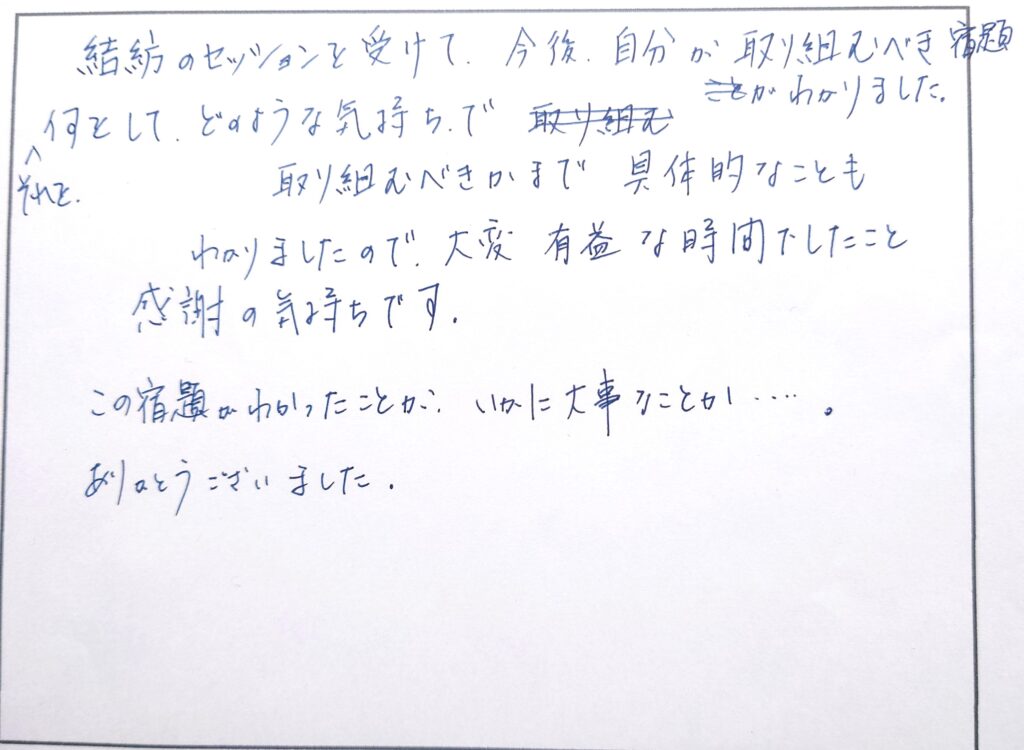 結紡のセッションを受けて、今後、自分が取り組むべき宿題
がわかりました。
それと、何として、どのような気持ちで
取り組むべきかまで具体的なことも
わかりましたので、大変有益な時間でしたこと
感謝の気持ちです。
この宿題がわかったことが、いかに大事なことか・・・・。
ありがとうございました。